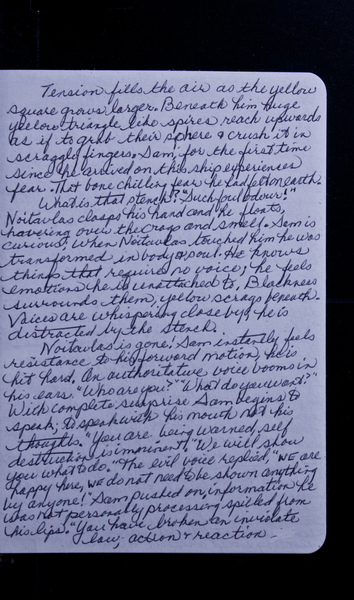 Tension fills the air as the yellow
square grows larger. Beneath him huge
yellow triangle like spires reach upwards
as if to grab their sphere & crush it in
scraggle fingers. Sam, for the first time
since he arrived on this ship experiences
fear. That bone chillery fear he had left on earth.
"What is that stench?" "Such foul odour!"
Noitavlas clasps his hand and he floats,
havering over the crags and smell. Sam is
curious, when Noitavlas touched him he was
transformed in body & soul. He knows
things that require no voice; he feels
emotions he is unattached to, Blackness
surrounds them, yellow scrags beneath.
Voices are whispering close by, he is
distracted by the stench.
Noitavlas is gone! Sam instantly feels
resistance to his forward motion, he is
hit hard. An authoritative voice booms in
his ears. "Who are you?" "What do you want?"
With complete surprise Sam begins to
speak; to speak with his mouth not his
thoughts. "You are being warned, self
destruction is imminent." "We will show
you what to do." The evil voice replied, "WE are
happy here, WE do not need to be shown anything
by anyone!" Sam pushed on, information he
was not personally processing spilled from
his lips. "You have broken an inviolate
law; action & reaction